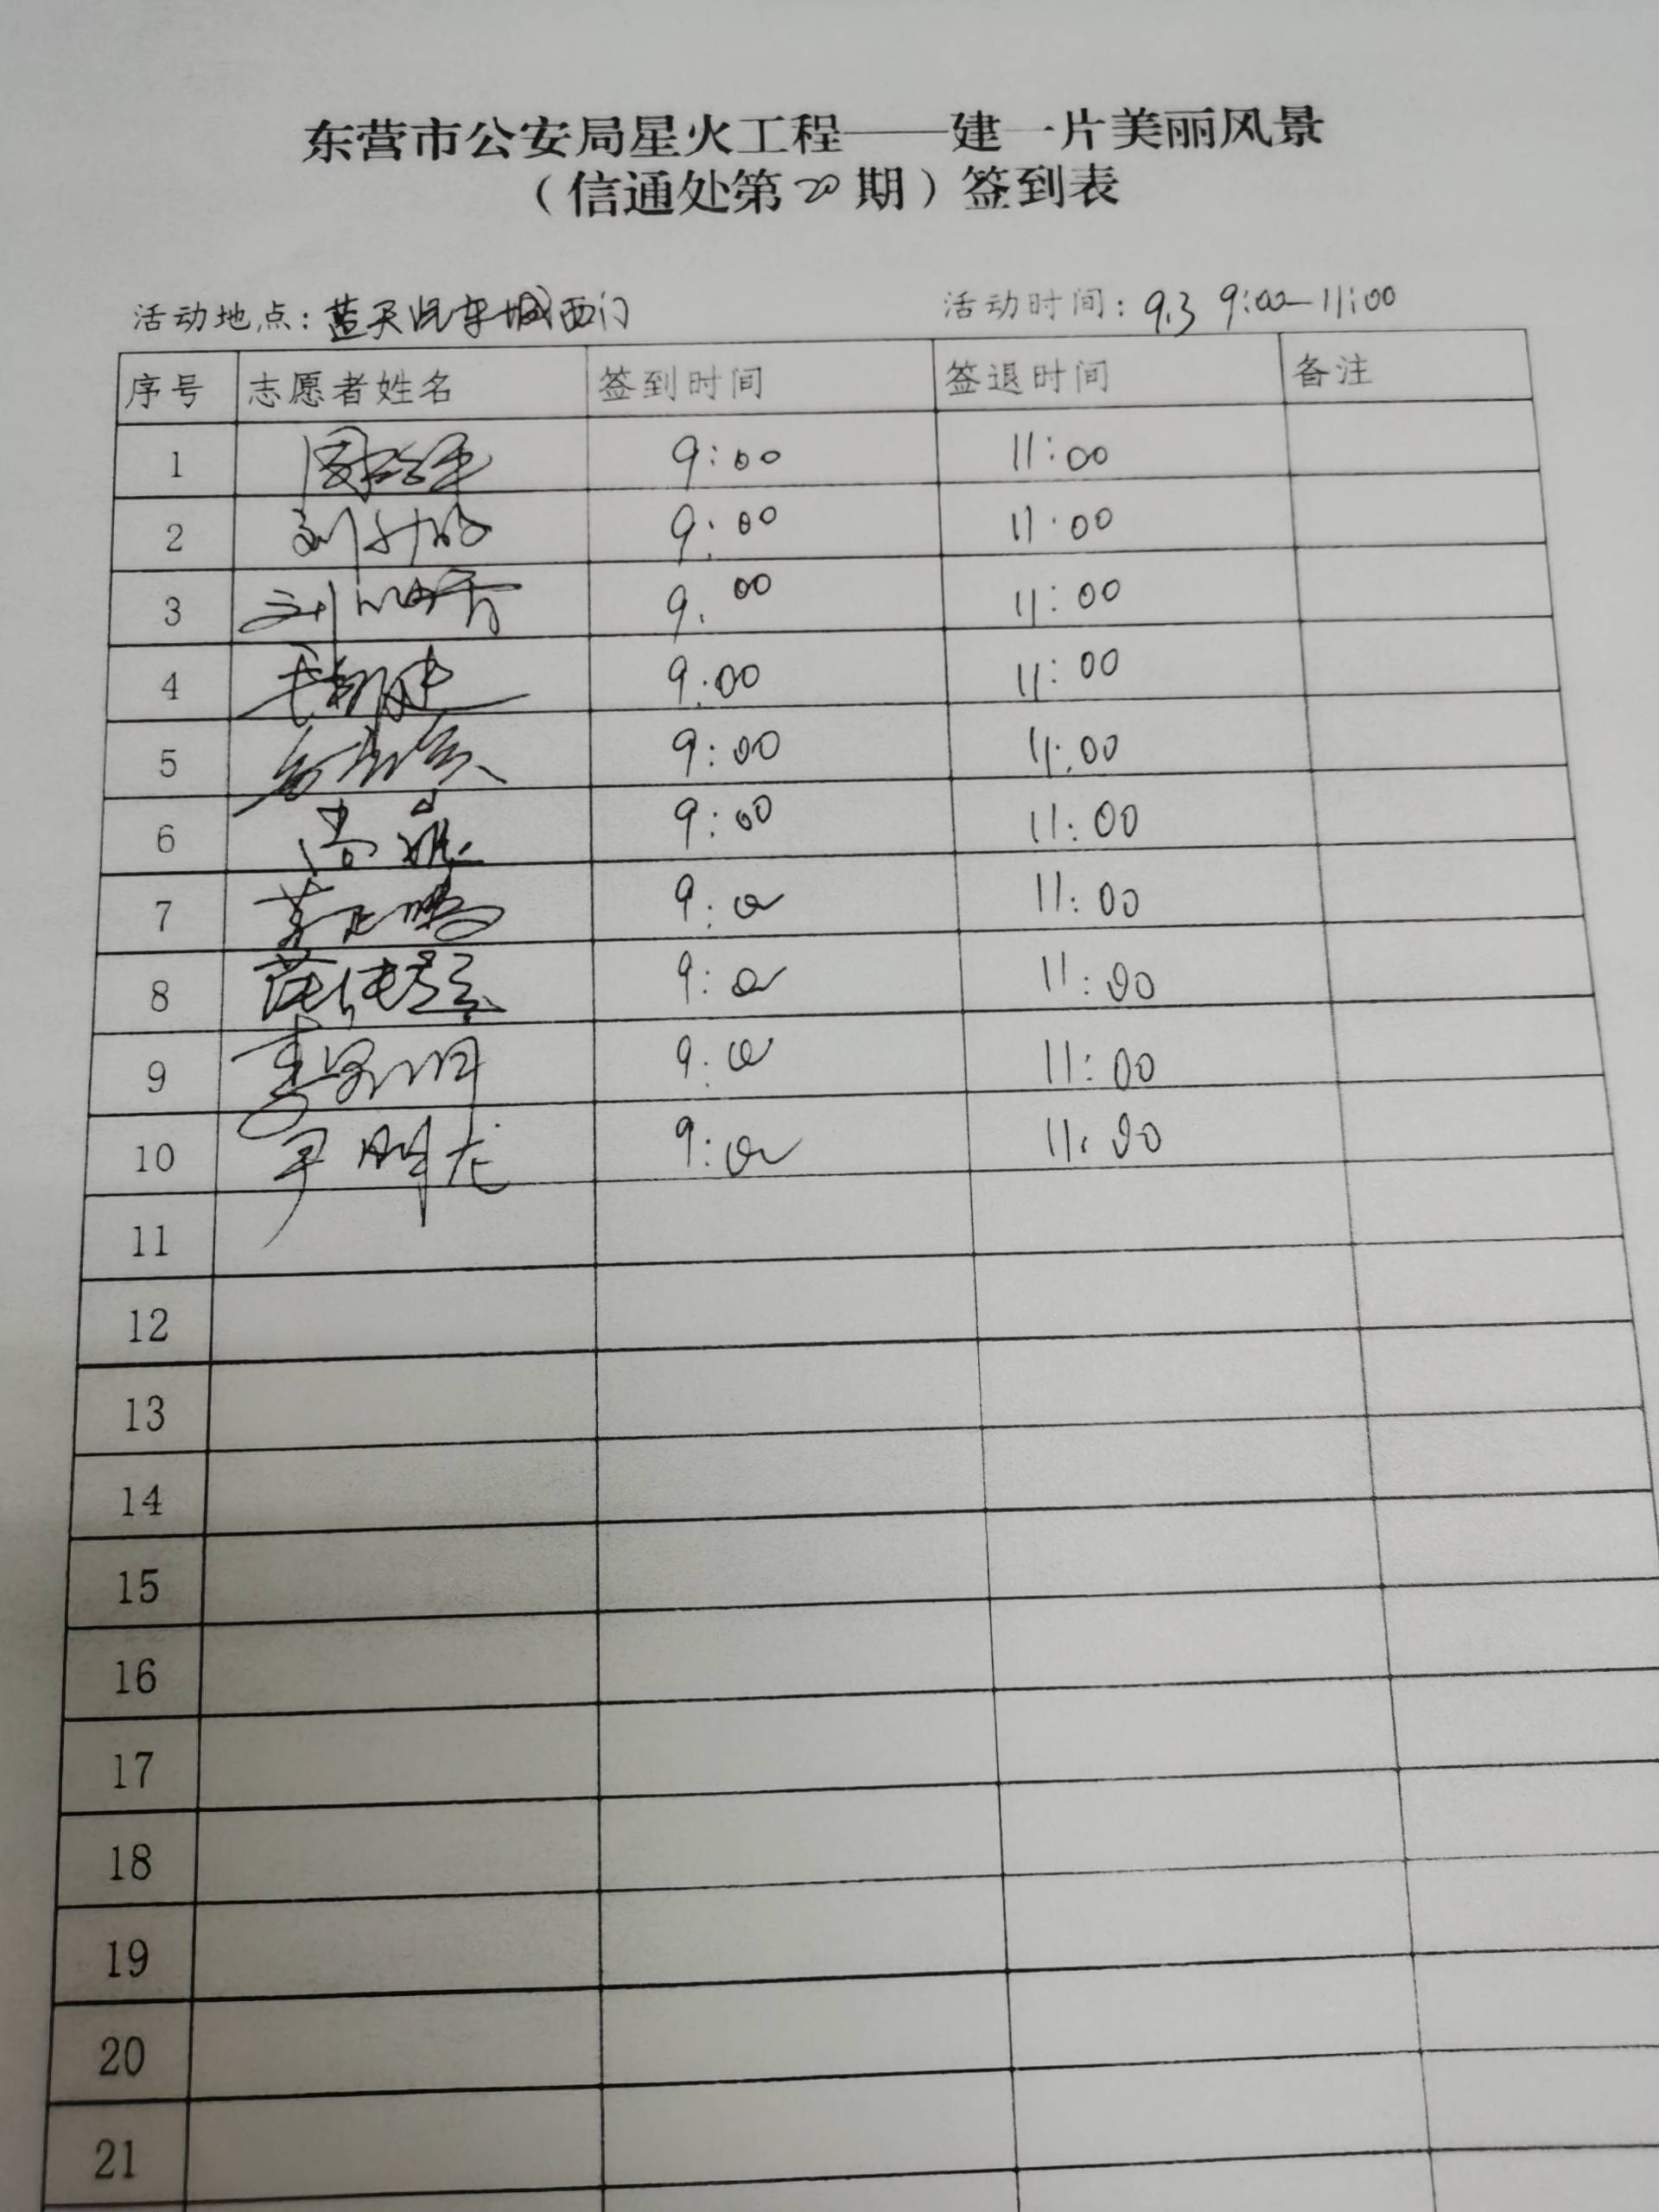 东营市公安局星火工程——建一片美丽风景
（信通处第 期）签到表
活动地点：蓝天汽车城西门 活动时间：9.3 9:00—11:00
序号 志愿者姓名 签到时间 签退时间 备注
1 9:00 11:00
2 9:00 11:00
3 9:00 11:00
4 9:00 11:00
5 9:00 11:00
6 9:00 11:00
7 9:00 11:00
8 9:00 11:00
9 9:00 11:00
10 尹鹏龙 9:00 11:00
11
12
13
14
15
16
17
18
19
20
21